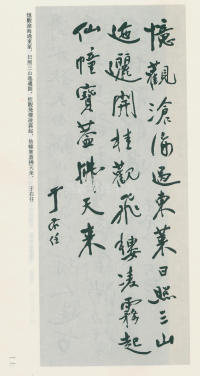 憶觀滄海過東萊日照三山
迤邐開桂觀飛樓凌霧起
仙幢寶蓋拂天来
于右任
憶觀滄海過東萊,日照三山迤邐開,桂觀飛樓凌霧起,仙幢寶蓋拂天來。 于右任
一一